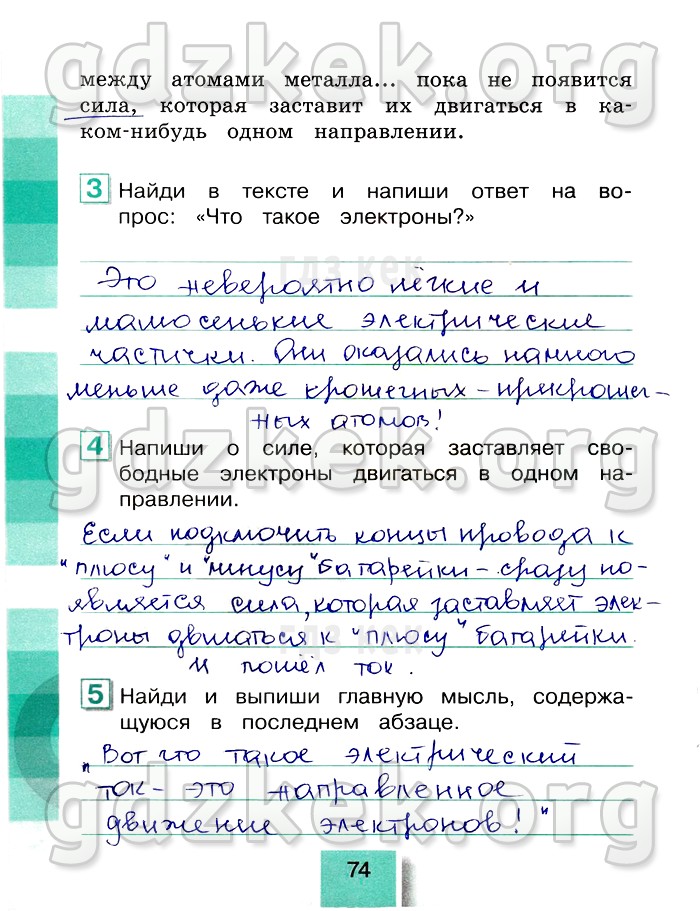 gdzkek.org
между атомами металла... пока не появится
сила, которая заставит их двигаться в ка-
ком-нибудь одном направлении.
3 Найди в тексте и напиши ответ на во-
прос: «Что такое электроны?»
гдз кек
Это невероятно лёгкие и
малюсенькие электрические
частички. Они оказались намного
меньше даже крошечных-прикрошеч-
ных атомов!
gdzkek.org
4 Напиши о силе, которая заставляет сво-
бодные электроны двигаться в одном на-
правлении.
Если подключить концы провода к
"плюсу" и "минусу" батарейки - сразу по-
является сила, которая заставляет элек-
троны двигаться к "плюсу" батарейки.
гдз кек
И пошёл ток.
5 Найди и выпиши главную мысль, содержа-
щуюся в последнем абзаце.
„Вот что такое электрический
ток - это направленное
движение электронов!"
gdzkek.org
74